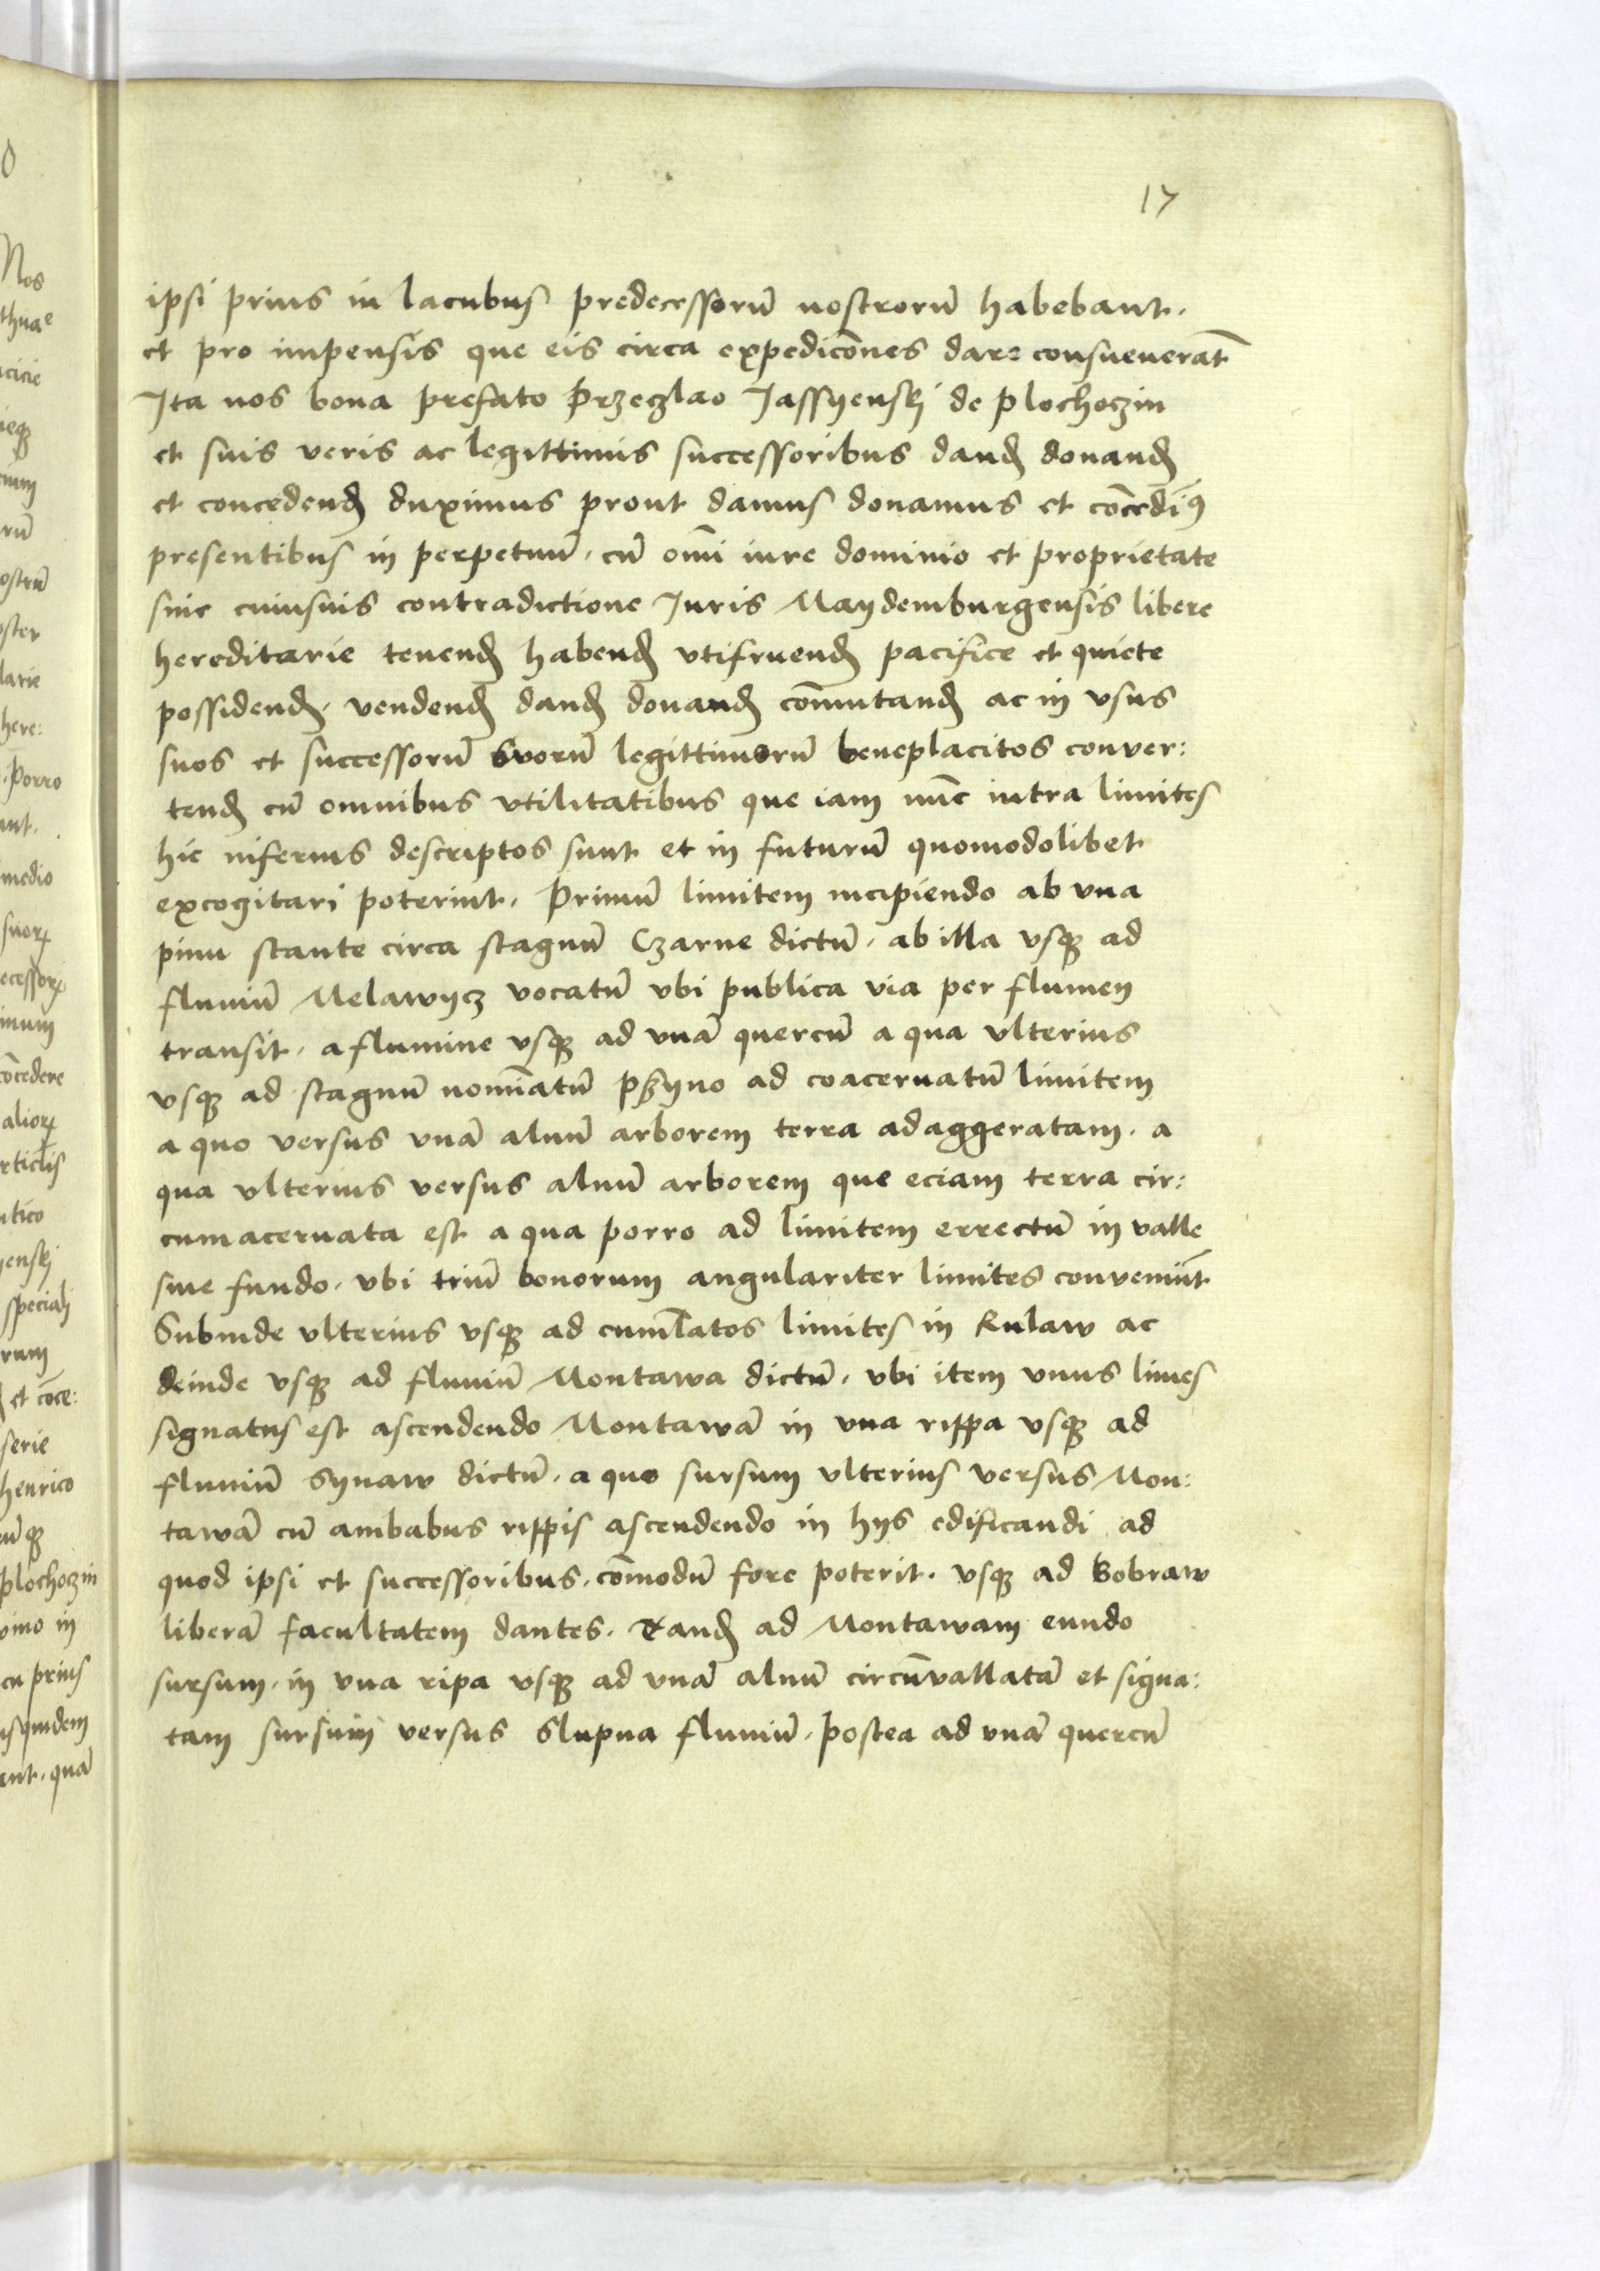 17
ipsi prius in lacubus predecessorū nostrorū habebant.
et pro impensis que eis circa expedicōnes dare consueuerāt
Ita nos bona prefato Przeczlao Jassyenskj de Plochoczin
et suis veris ac legittimis successoribus dand̄ donand̄
et concedend̄ duximus prout damus donamus et cōcedim9
presentibus in perpetuū, cū om̄i iure dominio et proprietate
sine cuiusuis contradictione Juris Maydemburgensis libere
hereditarie tenend̄ habend̄ vtifruend̄ pacifice et quiete
possidend̄, vendend̄ dand̄ donand̄ com̄utand̄ ac in vsus
suos et successorū svorū legittimorū beneplacitos conuer:
tend̄ cū omnibus vtilitatibus que iam nūc intra limites
hic inferius descriptos sunt et in futurū quomodolibet
excogitari poterint, Primū limitem incipiendo ab vna
pinu stante circa stagnū Czarne dictū, ab illa vsqꝫ ad
fluuiū Melawycz vocatū vbi publica via per flumen
transit, a flumine vsqꝫ ad vnā quercū a qua vlterius
vsqꝫ ad stagnū nomīatū ad coaceruatū limitem
a quo versus vnā alnū arborem terra adaggeratam, a
qua vlterius versus alnū arborem que eciam terra cir:
cumaceruata est a qua porro ad limitem errectū in valle
sine fundo, vbi triū bonorum angulariter limites conueniūt
Subinde vlterius vsqꝫ ad cumlatos limites in Kulaw ac
deinde vsqꝫ ad fluuiū Montawa dictū, vbi item vnus limes
signatus est ascendendo Montawā in vna rippa vsqꝫ ad
fluuiū Synaw dictū, a quo sursum vlterius versus Mon:
tawā cū ambabus rippis ascendendo in hys edificandi ad
quod ipsi et successoribus, cōmodū fore poterit, vsqꝫ ad Bobraw
liberā facultatem dantes, Tand̄ ad Montawam eundo
sursum, in vna ripa vsqꝫ ad vnā alnū circūuallatā et signa:
tam sursum versus Slupna fluuiū, postea ad vnā quercū